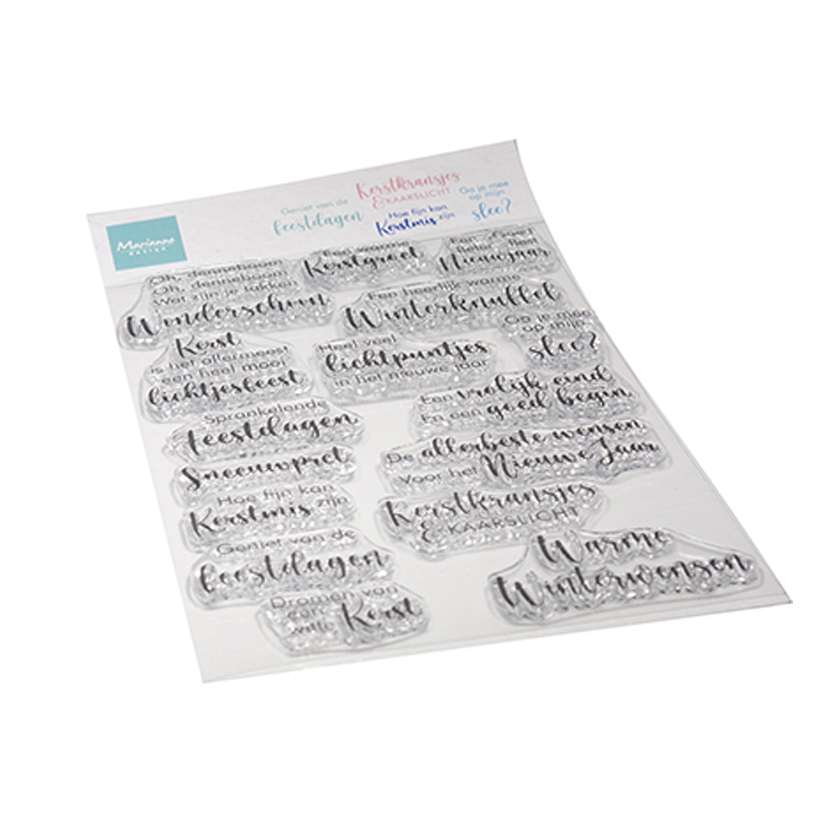 Marianne
DESIGN
Geniet van de
feestdagen
Kerstkransjes
& KAARSLICHT
Hoe fijn kan
Kerstmis zijn
Ga je mee
op mijn
slee?
Oh, denneboom
Oh, denneboom
Wat zijn je takken
Wonderschoon
Kerstgroet
Nieuwjaar
Een heerlijk warme
Winterknuffel
Kerst
is het allermeest
een heel mooi
lichtjesfeest
Heel veel
lichtpuntjes
in het nieuwe jaar
Ga je mee
op mijn
slee?
Sprankelende
feestdagen
Een vrolijk eind
En een goed begin
Sneeuwpret
De allerbeste wensen
Voor het Nieuwe Jaar
Hoe fijn kan
Kerstmis zijn
Kerstkransjes
& KAARSLICHT
Geniet van de
feestdagen
Warme
Winterwensen
Dromen van
een
witte Kerst